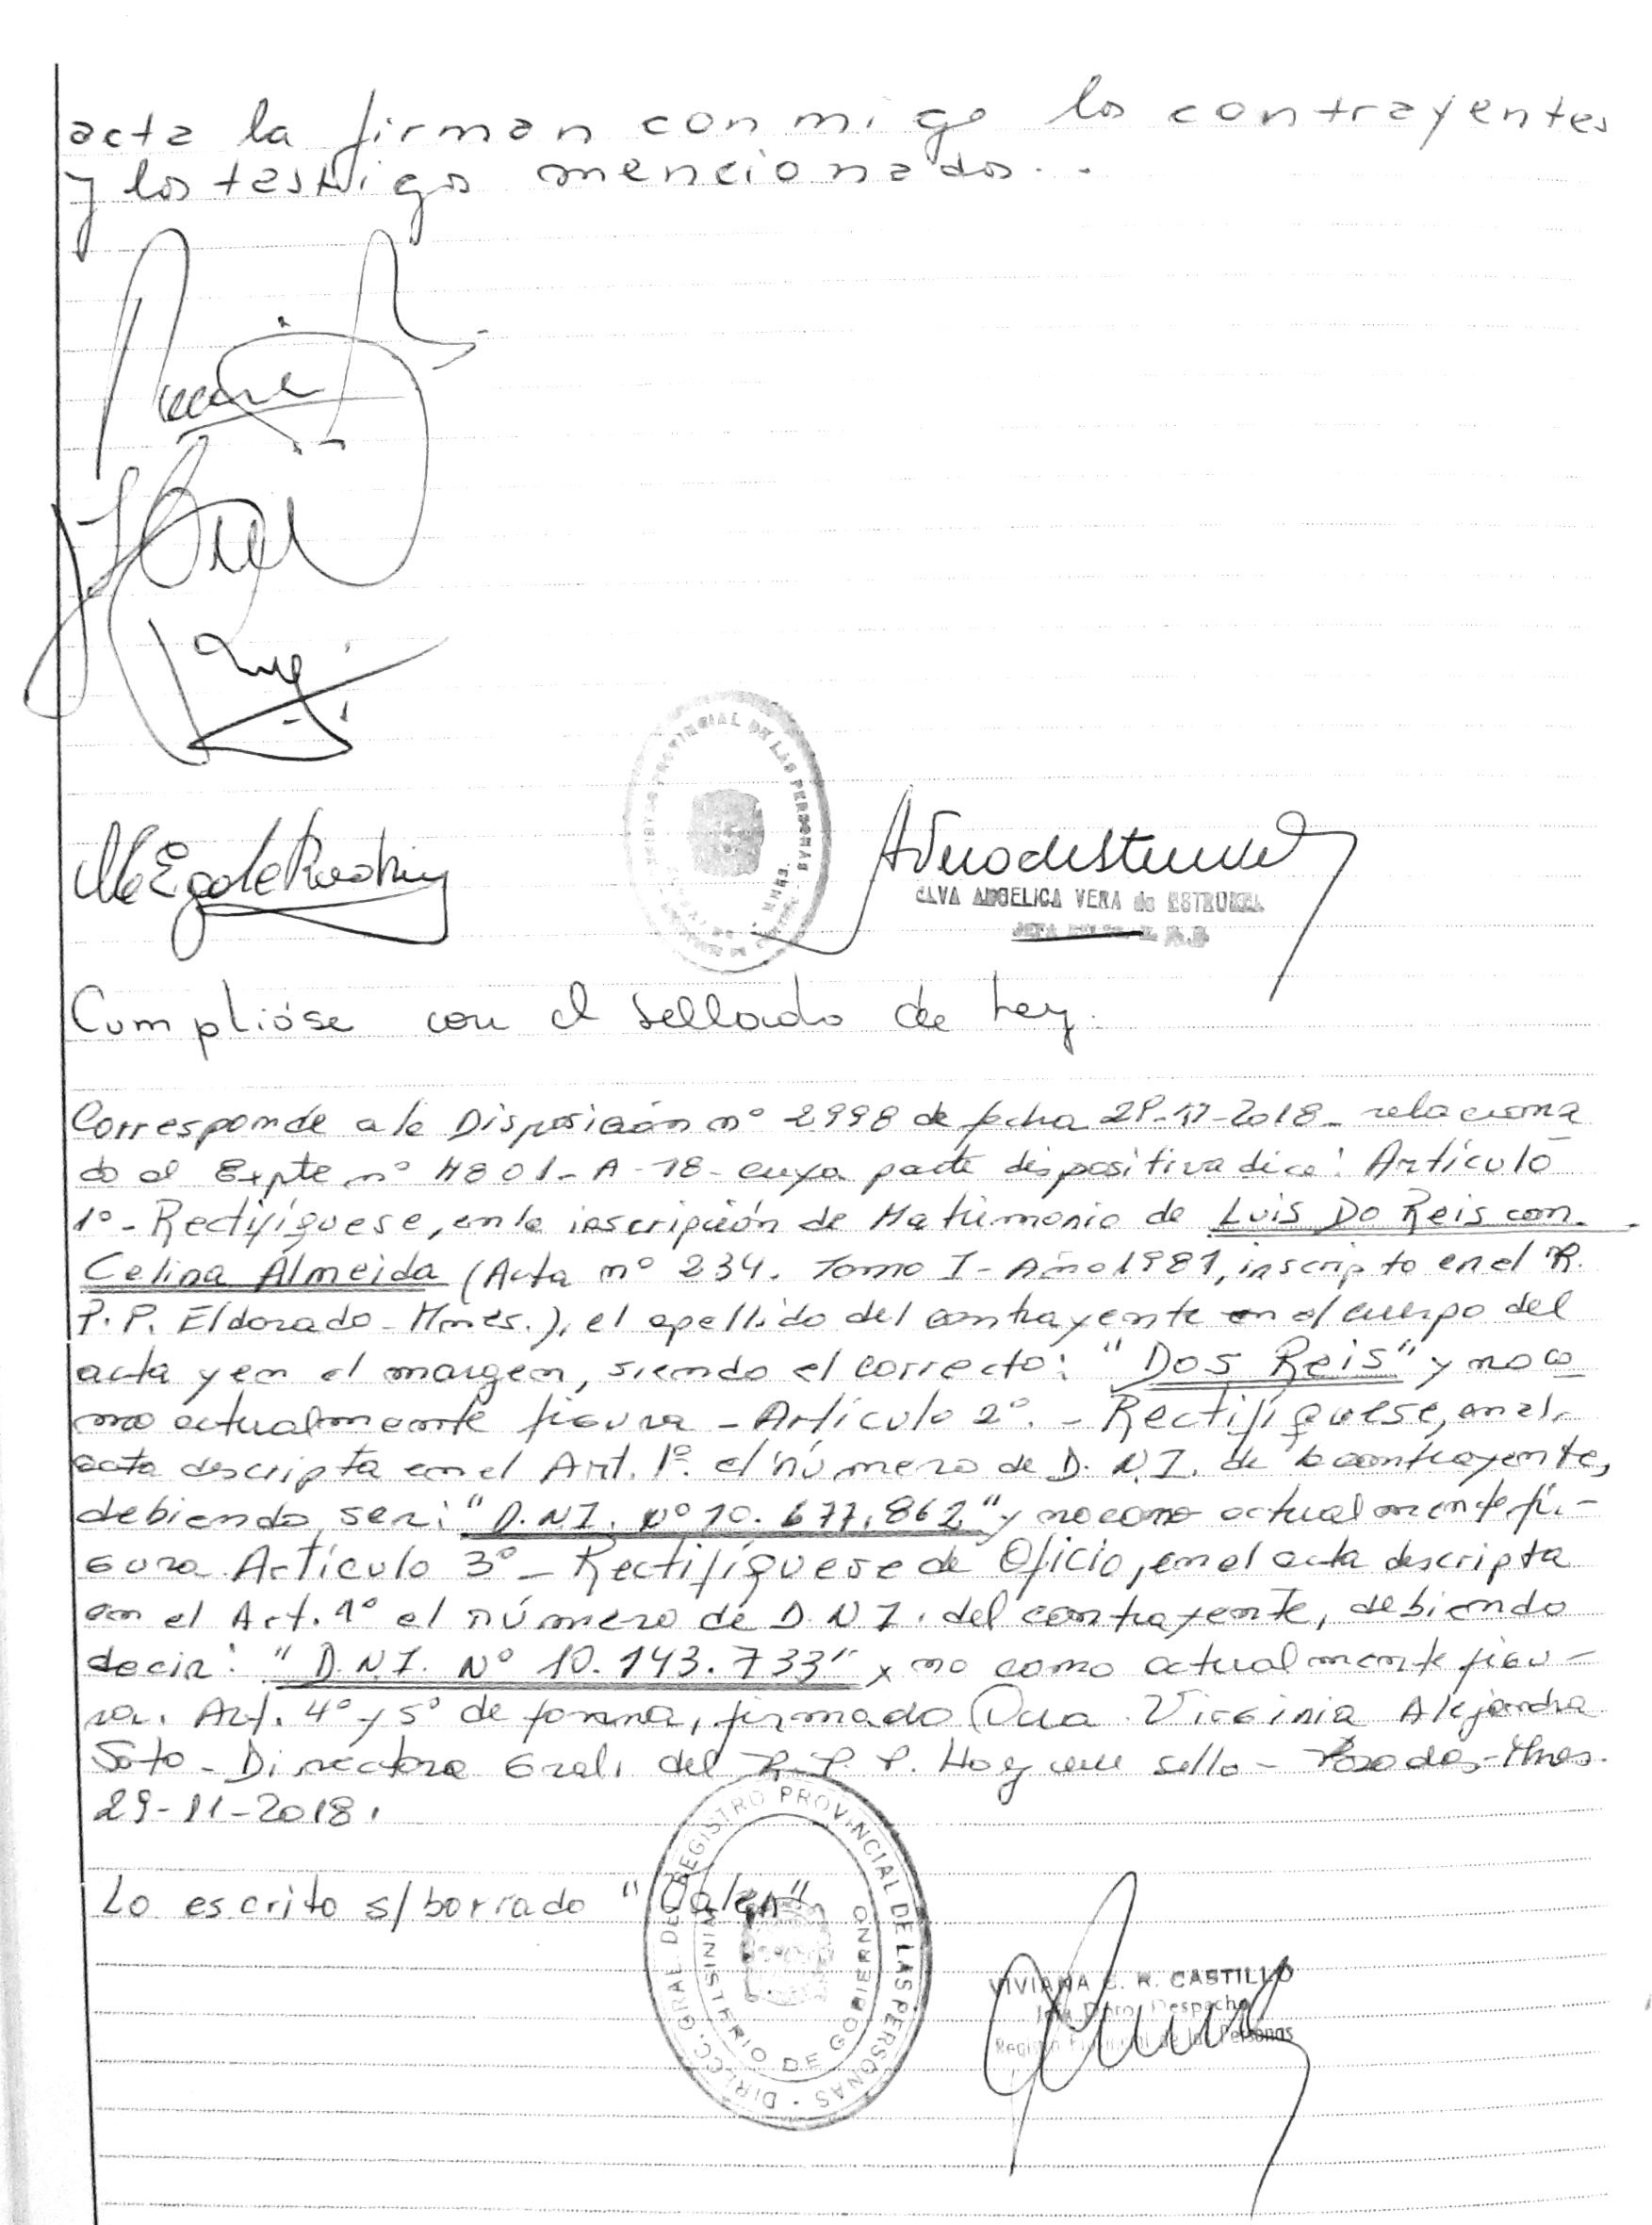 acta la firman conmigo los contrayentes
y los testigos mencionados..
ELVA ANGELICA VERA de ESTRUMEL
Cumplióse con el sellado de Ley.
Corresponde a la Disposición nº 2998 de fecha 28-11-2018- relaciona
do al Expte nº 4801-A-18- cuya parte dispositiva dice: Artículo
1º- Rectifíquese, en la inscripción de Matrimonio de Luis Do Reis con
Celina Almeida (Acta nº 234. Tomo I- Año 1981, inscripto en el R.
P.P. Eldorado-Mnes.), el apellido del contrayente en el cuerpo del
acta y en el margen, siendo el correcto: "Dos Reis" y no co
mo actualmente figura - Artículo 2º.- Rectifíquese, en el
acta descripta en el Art. 1º. el número de D.N.I. de la contrayente,
debiendo ser: "D.N.I. Nº 10.677.862" y no como actualmente fi-
gura Artículo 3º- Rectifíquese de Oficio, en el acta descripta
en el Art. 1º el número de D.N.I. del contrayente, debiendo
decir: "D.N.I. Nº 10.143.733" y no como actualmente figu-
ra. Art. 4º y 5º de forma, firmado Dra. Virginia Alejandra
Soto - Directora Gral. del R.P.P. Hay un sello - Posadas-Mnes.
29-11-2018.
Lo escrito s/borrado
DIRECC. GRAL. DEL REGISTRO PROVINCIAL DE LAS PERSONAS
MINISTERIO DE GOBIERNO
VIVIANA C. R. CASTILLO
Despacho
Registro Provincial de las Personas